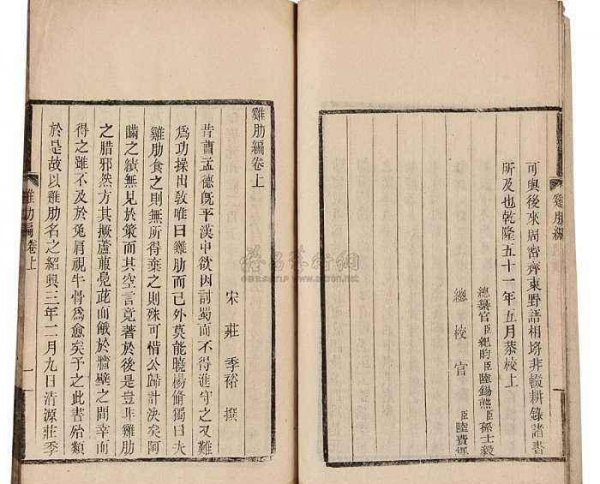 可與後來周密齊東野語相埒非輟耕錄諸書
所及也乾隆五十一年五月恭校上
總纂官臣紀昀臣陸錫熊臣孫士毅
總校官臣陸費墀
雞肋編
雞肋編卷上
宋 莊季裕 撰
昔曹孟德既平漢中欲因討蜀而不得進守之又難
為功操出敎唯曰雞肋而已外莫能曉楊脩獨曰夫
雞肋食之則無所得棄之則殊可惜公歸計決矣阿
瞞之績無見於策而其空言竟著於後是豈非雞肋
之腊邪然方其撅蘆菔鳧茈而餓於牆壁之間幸而
得之雖不及於兔肩視牛骨為愈矣予之此書殆類
於是故以雞肋名之紹興三年二月九日清源莊季
雞肋編 卷上
一